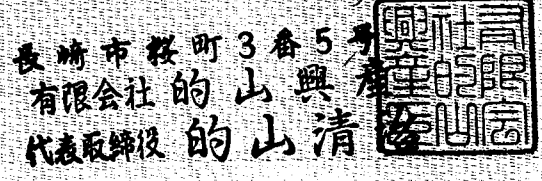 長崎市桜町3番5号
有限会社的山興産
代表取締役的山清